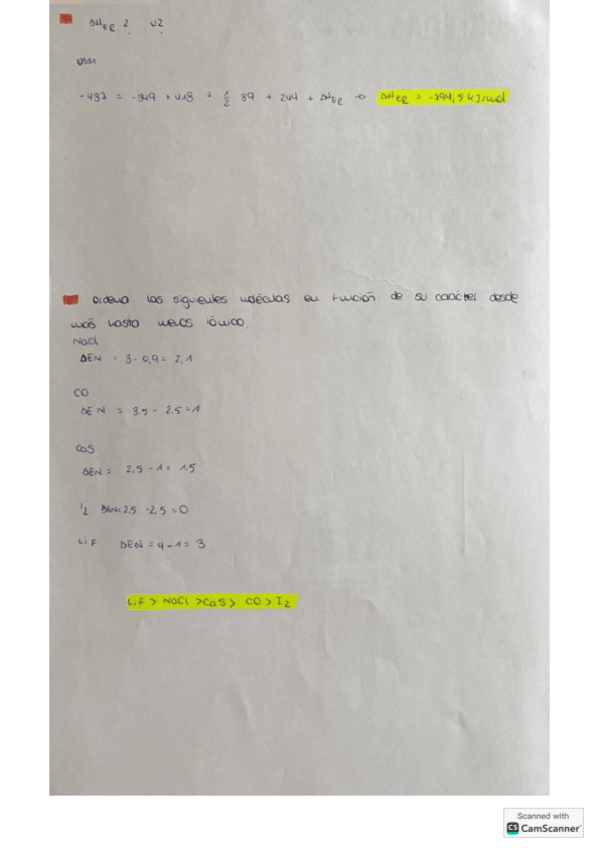 ΔH ER ? U?
-437 = -349 + 418 + 1/2 89 + 244 + ΔH ER → ΔH ER = -794,5 kJ/mol
Ordena las siguientes moléculas en función de su carácter desde
más hasta menos iónico.
NaCl
ΔEN = 3 - 0,9 = 2,1
CO
ΔEN = 3,5 - 2,5 = 1
CaS
ΔEN = 2,5 - 1 = 1,5
I2 ΔEN = 2,5 - 2,5 = 0
LiF ΔEN = 4 - 1 = 3
LiF > NaCl > CaS > CO > I2
Scanned with
CS CamScanner